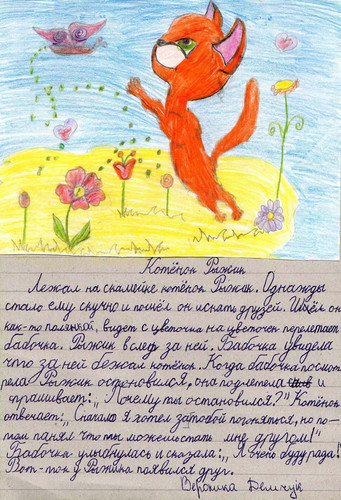 Котёнок Рыжик
Лежал на скамейке котёнок Рыжик. Однажды
стало ему скучно и пошёл он искать друзей. Шёл он
как-то полянкой, видет с цветочка на цветочек перелетает
бабочка. Рыжик вслед за ней. Бабочка увидела
что за ней бежал котёнок. Когда бабочка посмот
рела Рыжик остоновился, она подлетела и
спрашивает: „Почему ты остановился?" Котёнок
отвечает: „Сначала я хотел за тобой погоняться, но по-
том понял что ты можеш стать мне другом!"
Бабочка улыбнулась и сказала: „Я очень буду рада!
Вот-так у Рыжика появился друг.
Вероника Демчук